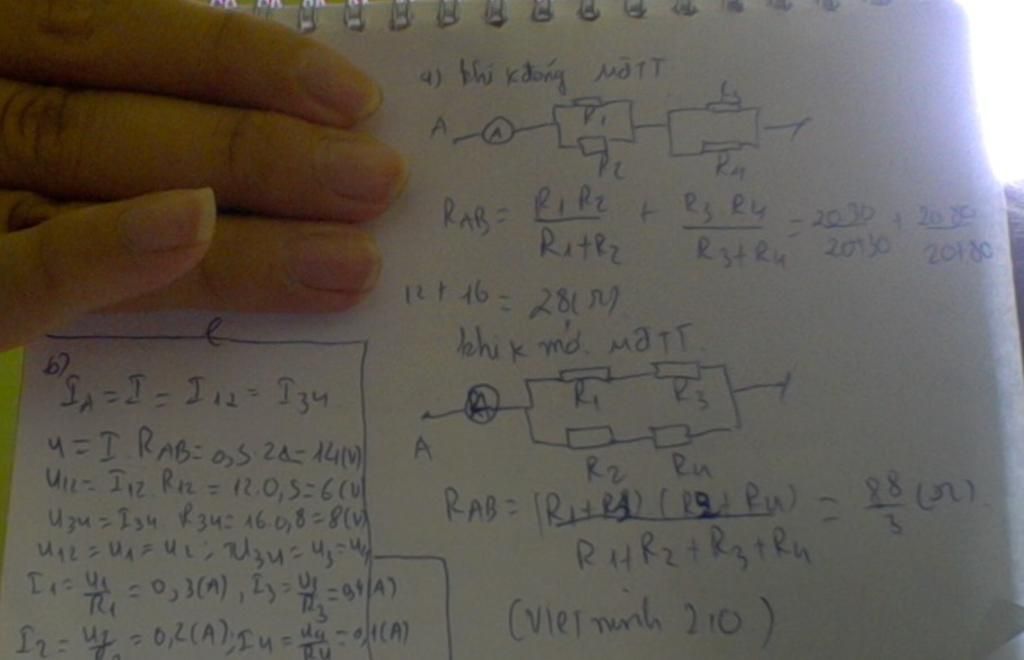 a) khi k đóng MĐTT
A A R1
R2 R4
RAB = R1 R2 / R1+R2 + R3 R4 / R3+R4 = 20.30 / 20+30 + 20.80 / 20+80
12 + 16 = 28(Ω)
khi k mở. MĐTT.
A A R1 R3
R2 R4
RAB = (R1+R3) (R2+R4) / R1+R2+R3+R4 = 88/3 (Ω).
(Viet minh 210)
b)
IA = I = I12 = I34
U = I RAB = 0,5 28 = 14(V)
U12 = I12 R12 = 12.0,5 = 6(V
U34 = I34 R34 = 16.0,8 = 8(V)
U12 = U1 = U2; U34 = U3 = U4
I1 = U1/R1 = 0,3(A), I3 = U3/R3 = 0,4(A)
I2 = U2 = 0,2(A); I4 = U4/R4 = 0,1(A)